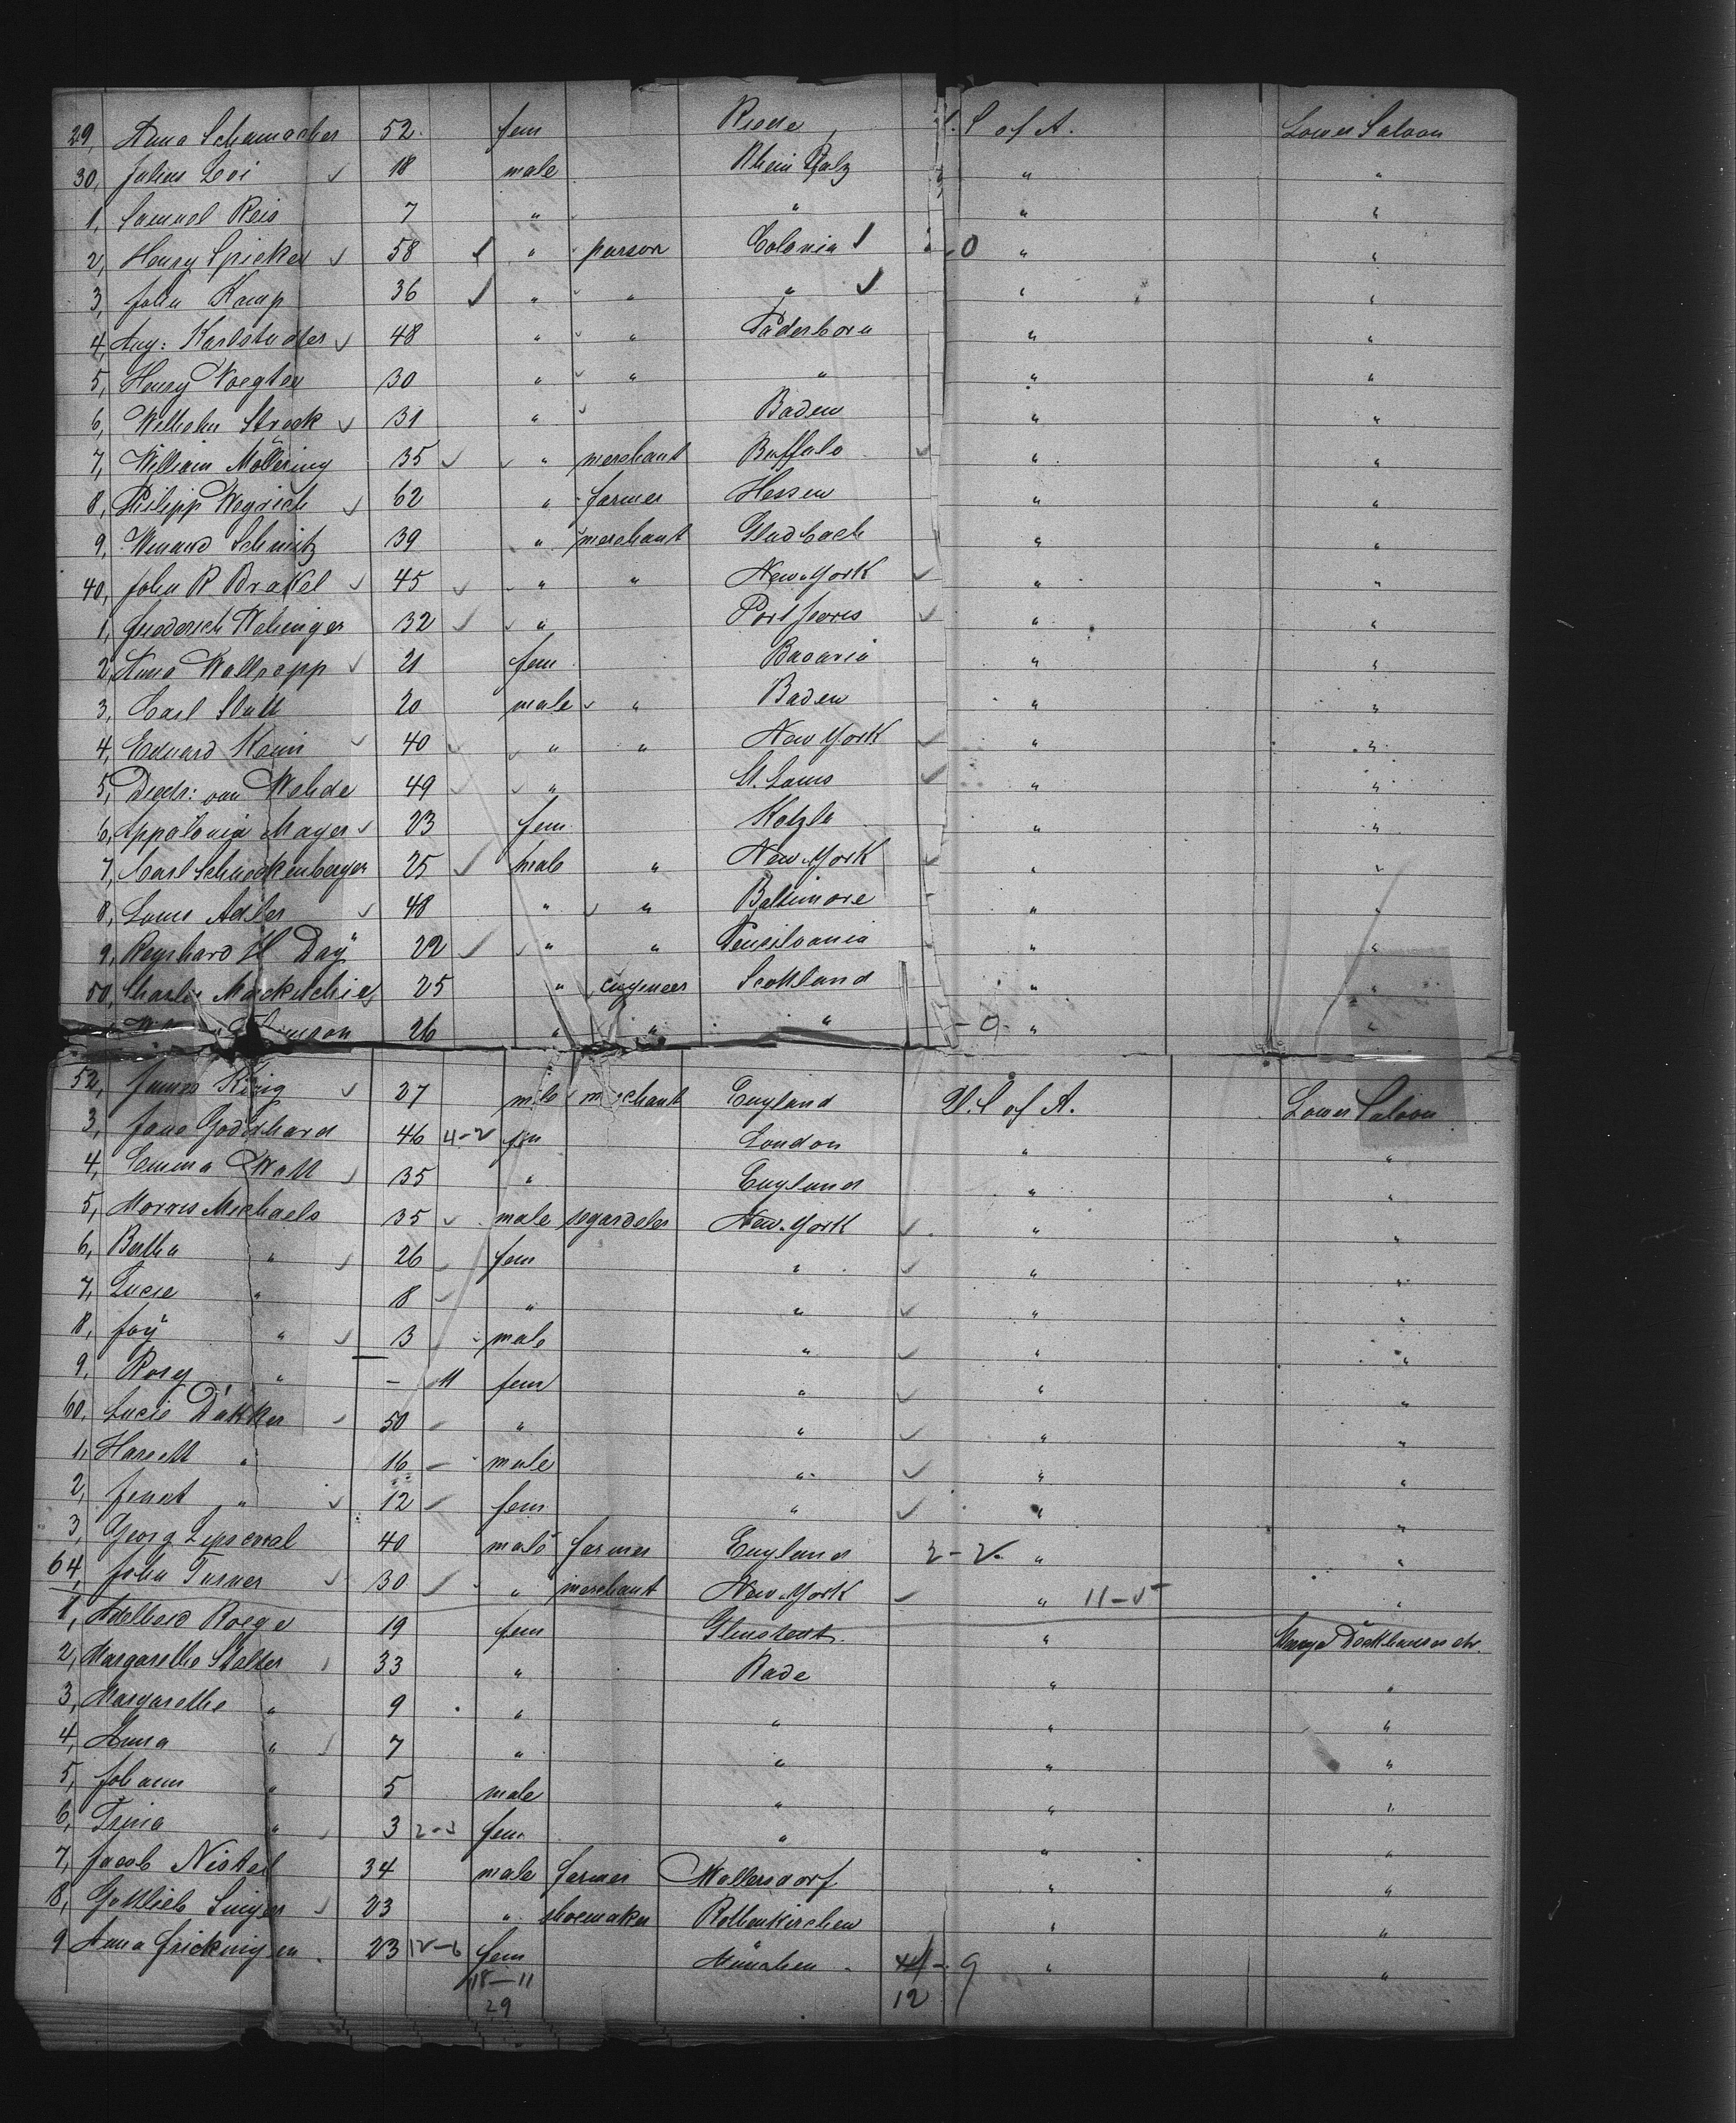 29, Anna Schumacher 52 fem Riede U. S. of A. Lower Saloon
30, Julius Loi 18 male Rhein Pfalz " "
1, Samuel Reis 7 " " " "
2, Henry Spicker 58 " parson Colonia - 0 " "
3, John Kamp 36 " " " " "
4, Aug: Karlstudter 48 " " Paderborn " "
5, Henry Voegten 30 " " " " "
6, Wilhelm Streck 31 " Baden " "
7, William Möllering 35 " merchant Buffalo " "
8, Philipp Weyrich 62 " farmer Hessen " "
9, Winand Schmitz 39 " merchant Gladbach " "
40, John R Brakel 45 " " New-York " "
1, Frederich Wehinger 32 " Port Jervis " "
2, Anna Wallrapp 21 fem Bavaria " "
3, Carl Stutt 20 male " Baden " "
4, Eduard Kaim 40 " " New York " "
5, Diedr: van Wehde 49 " St. Louis " "
6, Appolonia Mayer 23 fem Kotzla " "
7, Carl Schneckenberger 25 male " New-York " "
8, Louis Adler 48 " " Baltimore " "
9, Reynhard H Day 22 " " Pensilvania " "
50, Charles Mackitchie 25 " engineer Scottland " "
26 " " " - 0 - "
52, James King 27 male merchant England U. S. of A. Lower Saloon
3, Jane Goddhard 46 4-2 fem London " "
4, Emma Watt 35 " England " "
5, Morris Michaels 35 male segardeler New-York " "
6, Bertha " 26 fem " " "
7, Lucie " 8 " " " "
8, Joy " 3 male " " "
9, Rosy " - 11 fem " " "
60, Lucie Dakker 50 " " " "
1, Harett " 16 male " " "
2, Jenet " 12 fem " " "
3, Georg Lipscoval 40 male farmer England 2-2 " "
64, John Turner 30 " merchant New-York " 11-5 "
1, Adelheid Roege 19 fem Glinstedt "
2, Margarethe Stalter 33 " Rade " "
3, Margarethe " 9 " " " "
4, Anna " 7 " " " "
5, Johann " 5 male " " "
6, Trina " 3 2-3 fem " " "
7, Jacob Nistel 34 male farmer Wallersdorf " "
8, Gottlieb Singer 23 " shoemaker Rothenkirchen " "
9 Anna Frickingen 23 12-6 fem München - 9 " "
18-11 12
29